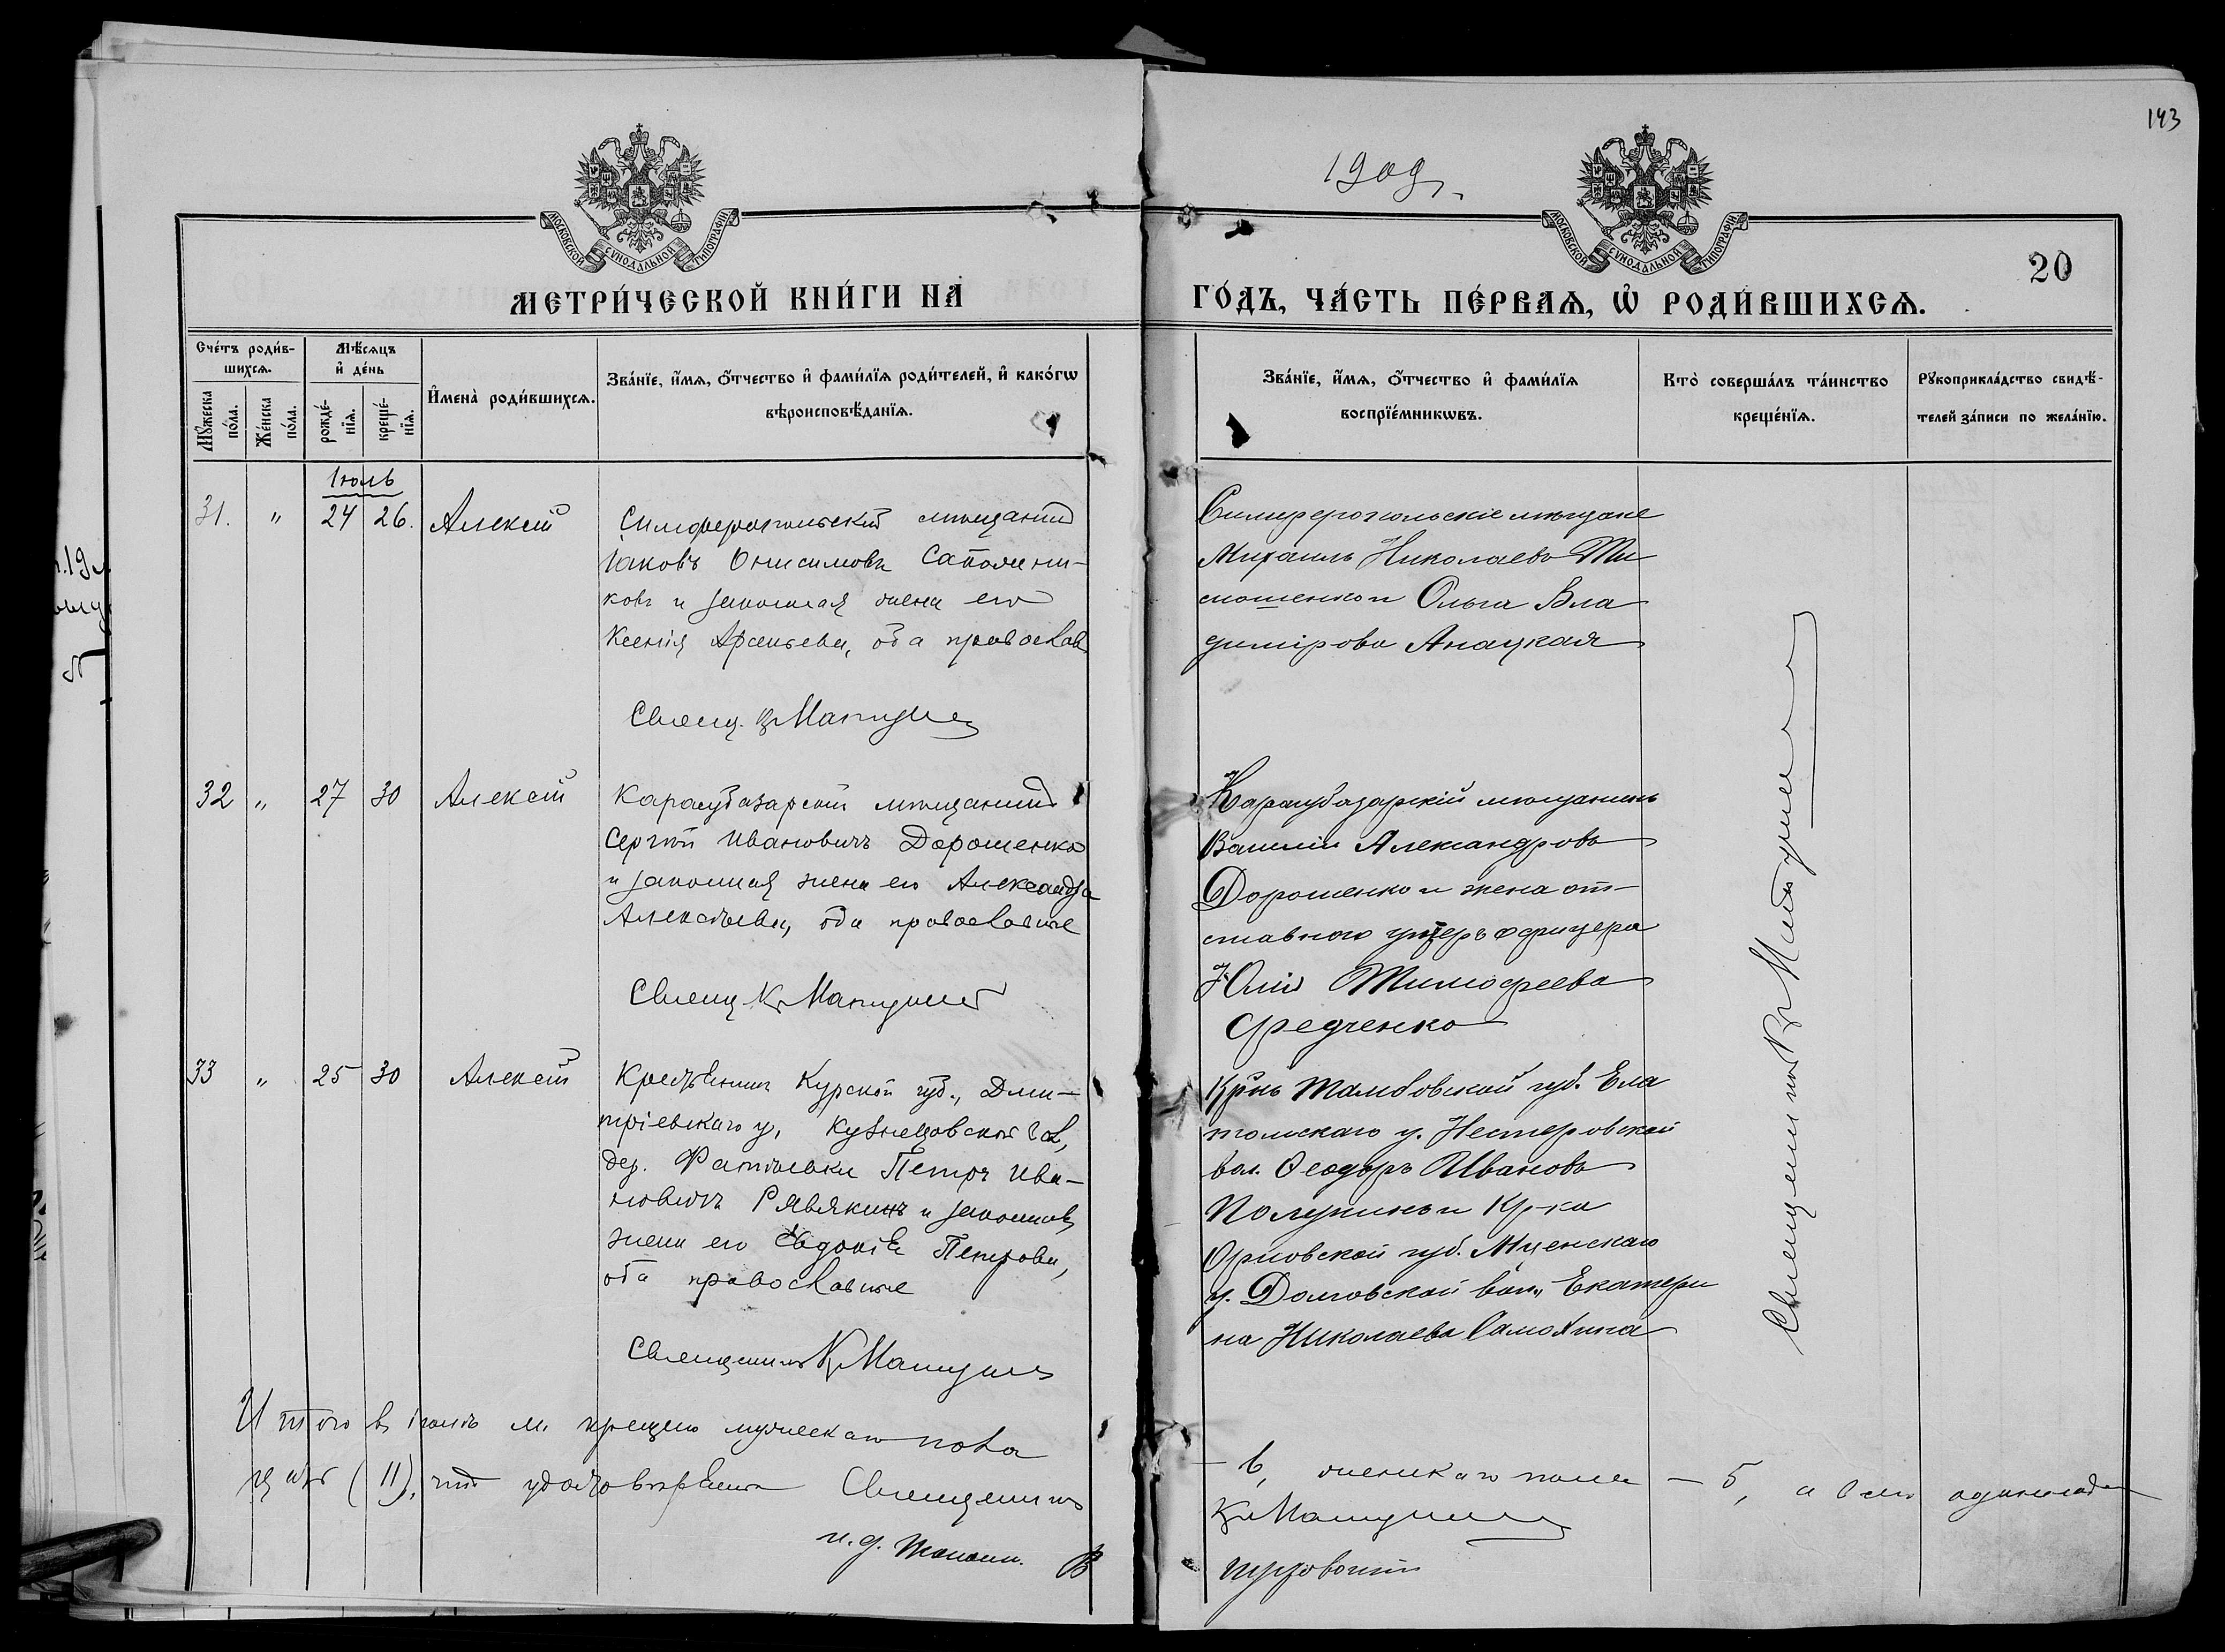 143
1909 г.
МОСКОВСКОЙ СУНОДАЛЬНОЙ ТИПОГРАФІИ
МОСКОВСКОЙ СУНОДАЛЬНОЙ ТИПОГРАФІИ
20
МЕТРИ́ЧЕСКОЙ КНИ́ГИ НА̀ ГО́ДЪ, ЧА́СТЬ ПЕ́РВАЯ, Ѡ҆ РОДИ́ВШИХСЯ.
Сче́тъ роди́вшихся.
Мꙋ́жеска по́ла.
Же́нска по́ла.
Мѣ́сяцъ и҆ де́нь
рожде́нїя.
креще́нїя.
И҆мена̀ роди́вшихся.
Зва́нїе, и҆́мя, ѻ҆́тчество и҆ фами́лїя роди́телей, и҆ како́гѡ
вѣроисповѣ́данїя.
Зва́нїе, и҆́мя, ѻ҆́тчество и҆ фами́лїя
воспрїе́мникѡвъ.
Кто̀ соверша́лъ та́инство
креще́нїя.
Рꙋкоприкла́дство свидѣ́-
телей за́писи по жела́нїю.
Іюль
31. " 24 26. Алексѣй
Симферопольскій мѣщанинъ
Іаковъ Онисимовъ Сапожни-
ковъ и законная жена его
Ксенія Арсеньева, оба православ.
Свящ. К. Мацушев
Симферопольскіе мѣщане
Михаилъ Николаевъ Ти
мошенко и Ольга Вла
димірова Анацкая
32 " 27 30 Алексѣй
Карасубазарскій мѣщанинъ
Сергѣй Ивановичъ Дорошенко
и законная жена его Александра
Алексѣева, оба православные
Свящ К.
Карасубазарскій мѣщанинъ
Василій Александровъ
Дорошенко и жена от-
ставного унтеръ офицера
Юлія Тимофеева
Федченко
33 " 25 30 Алексѣй
Крестьянинъ Курской губ., Дми-
тріевскаго у, Кузнецовской вол,
дер. Фатѣевки Петръ Ива-
новичъ Рявякинъ и законная
жена его Евдокія Петрова,
оба православные
Священникъ К.
Кр-нъ Тамбовской губ. Ела
томскаго у. Нестеровской
вол. Ѳеодоръ Ивановъ
Полунинъ и Кр-ка
Орловской губ. Мценскаго
у. Долговской вол., Екатери
на Николаева Самохина
Священникъ К.
Итого въ іюлѣ м. крещено мужескаго пола — 6, женскаго пола — 5, а всего одиннад
цать (11), что удостовѣряемъ Священникъ К.
и. д. псаломщ. В